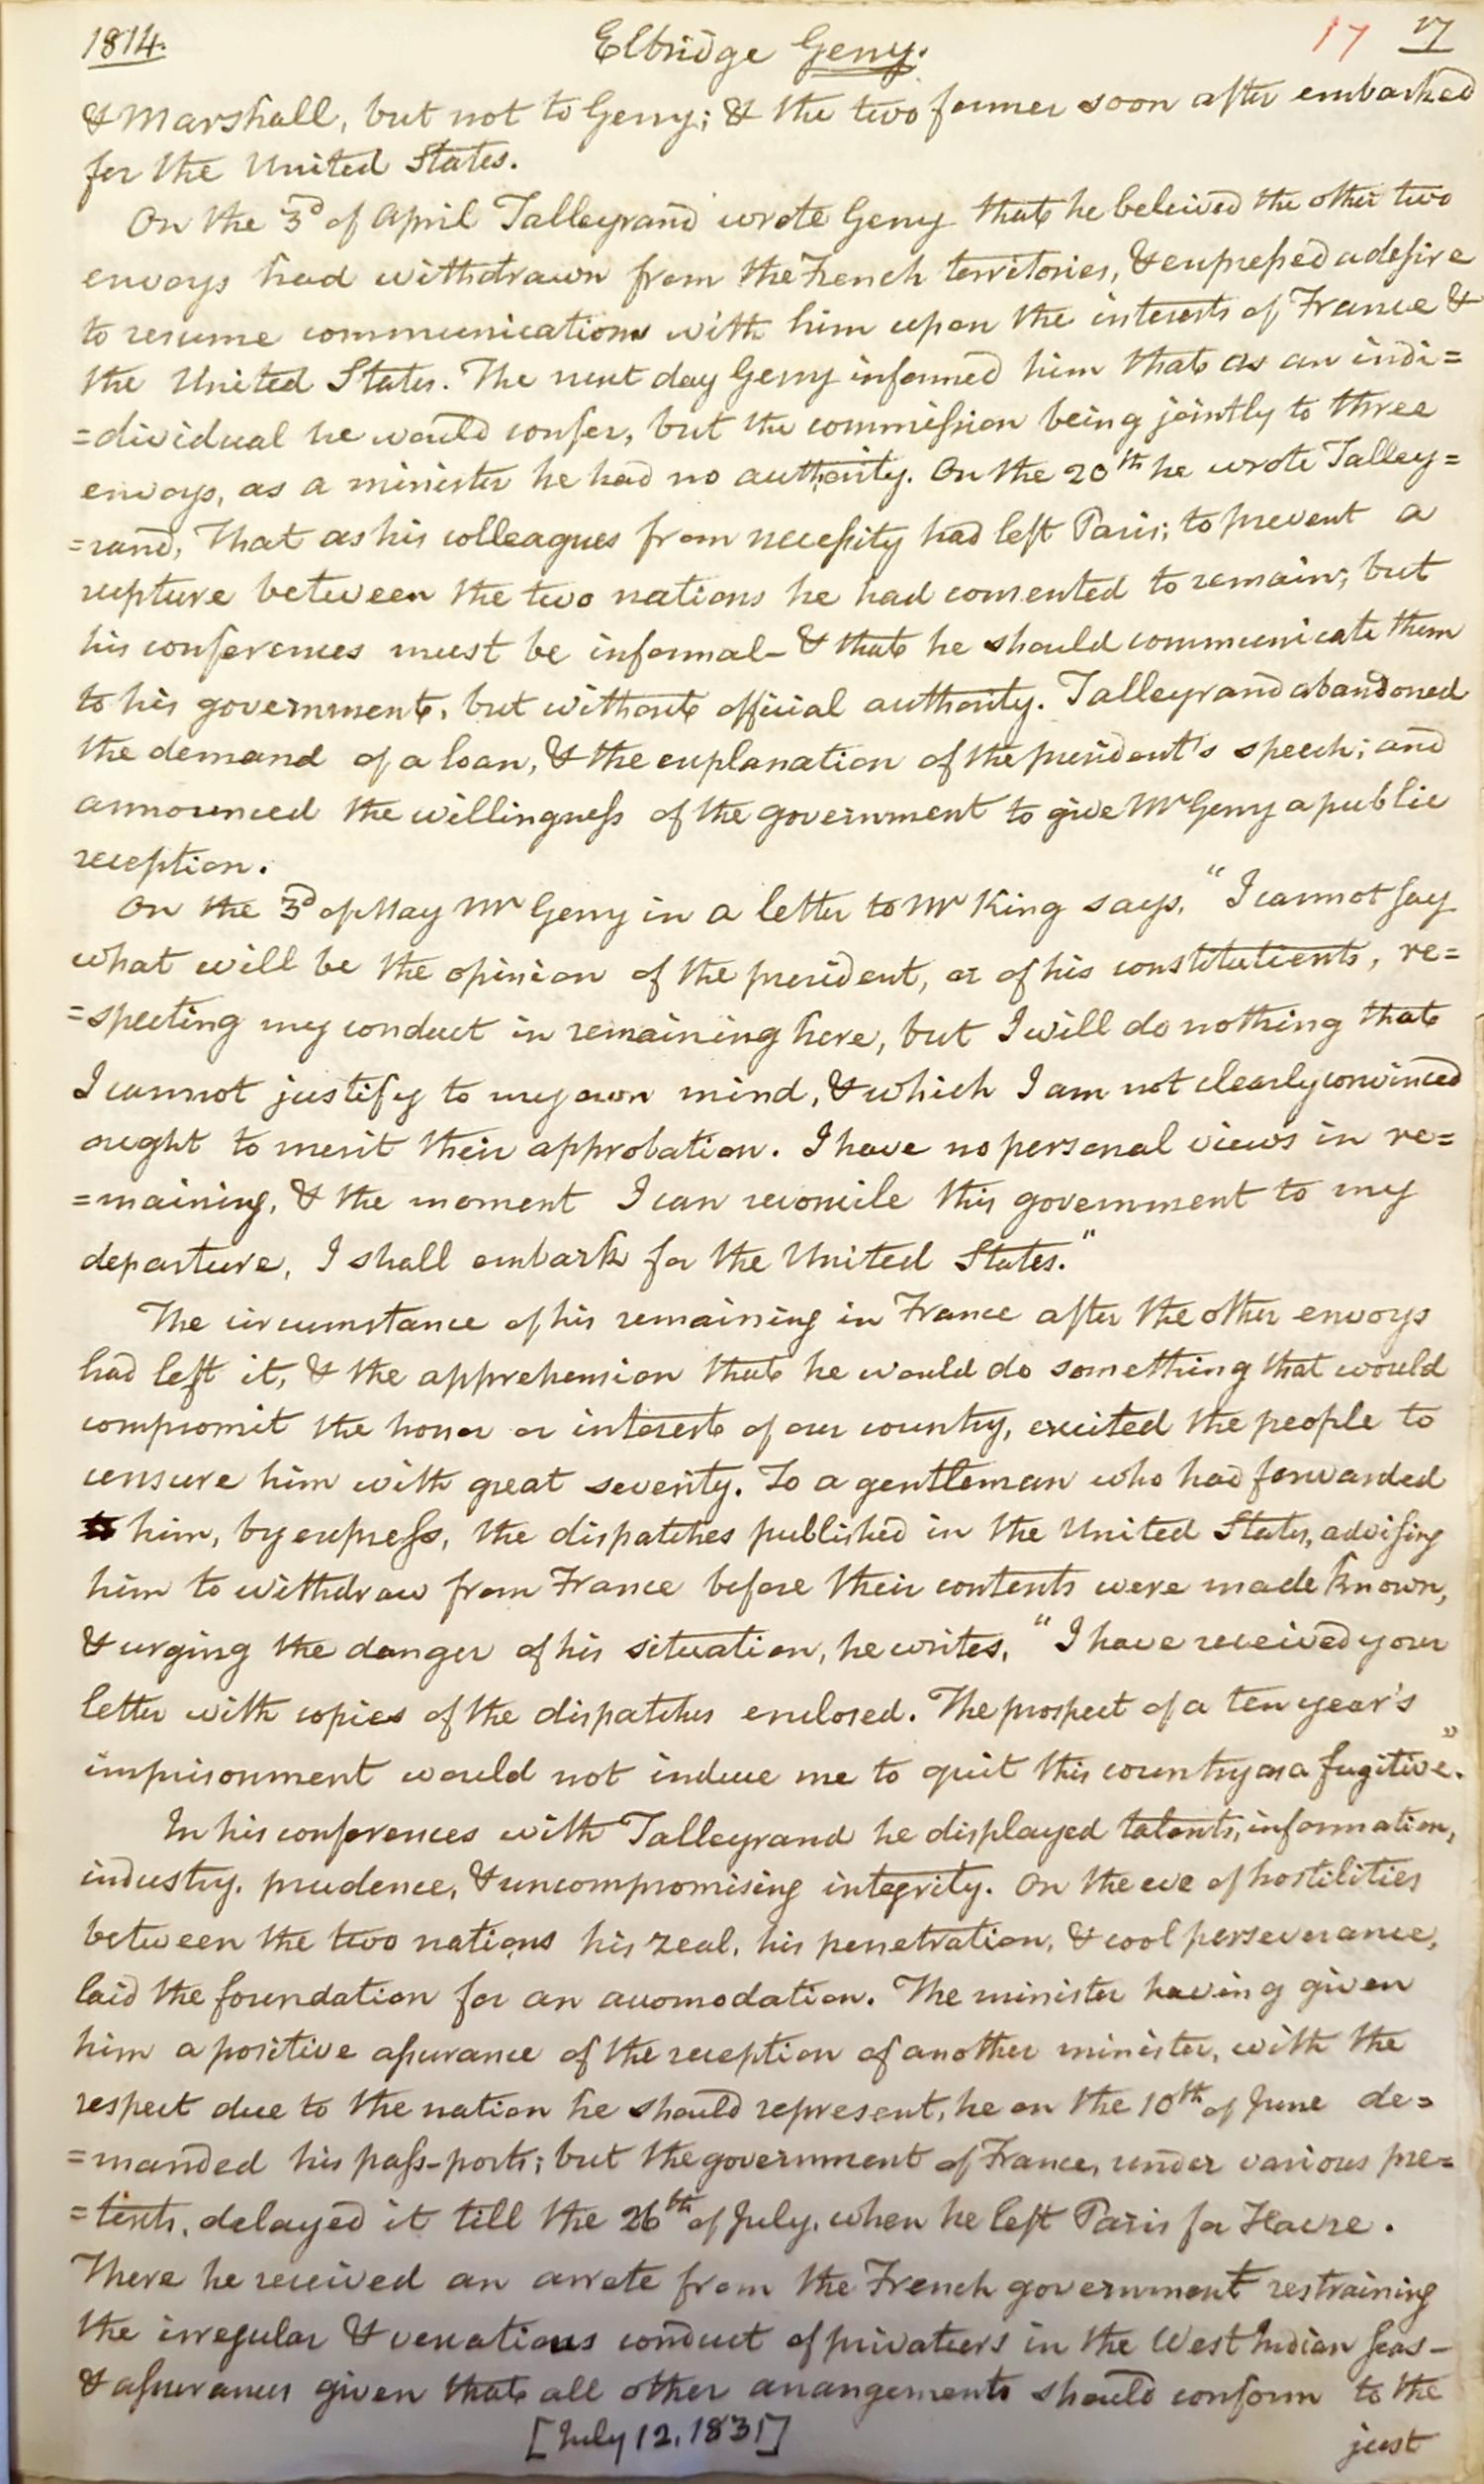 1814. Elbridge Gerry. 17 17
& Marshall, but not to Gerry; & the two former soon after embarked
for the United States.
On the 3d of April Talleyrand wrote Gerry that he beleived the other two
envoys had withdrawn from the French territories, & expressed a desire
to resume communications with him upon the interests of France &
the United States. The next day Gerry informed him that as an indi=
=dividual he would confer, but the commission being jointly to three
envoys, as a minister he had no authority. On the 20th he wrote Talley=
=rand, That as his colleagues from necessity had left Paris; to prevent a
rupture between the two nations he had consented to remain; but
his conferences must be informal- & that he should communicate them
to his government, but without official authority. Talleyrand abandoned
the demand of a loan, & the explanation of the president's speech; and
announced the willingness of the government to give Mr Gerry a public
reception.
On the 3d of May Mr Gerry in a letter to Mr King says, "I cannot say
what will be the opinion of the president, or of his constitutients, re=
=specting my conduct in remaining here, but I will do nothing that
I cannot justify to my own mind, & which I am not clearly convinced
ought to merit their approbation. I have no personal views in re=
=maining, & the moment I can reconcile this government to my
departure, I shall embark for the United States."
The circumstance of his remaining in France after the other envoys
had left it, & the apprehension that he would do something that would
compromit the honor or interest of our country, excited the people to
censure him with great severity. To a gentleman who had forwarded
to him, by express, the dispatches published in the United States, advising
him to withdraw from France before their contents were made known,
& urging the danger of his situation, he writes, "I have received your
letter with copies of the dispatches enclosed. The prospect of a ten year's
imprisonment would not induce me to quit this country as a fugitive."
In his conferences with Talleyrand he displayed talents, information,
industry, prudence, & uncompromising integrity. On the eve of hostilities
between the two nations his zeal, his penetration, & cool perseverance,
laid the foundation for an accomodation. The minister having given
him a positive assurance of the reception of another minister, with the
respect due to the nation he should represent, he on the 10th of June de=
=manded his pass-ports; but the government of France, under various pre=
=texts, delayed it till the 26th of July, when he left Paris for Havre.
There he received an arrete from the French government restraining
the irregular & vexatious conduct of privateers in the West Indian seas-
& assurances given that all other arrangements should conform to the
[July 12, 1831] just